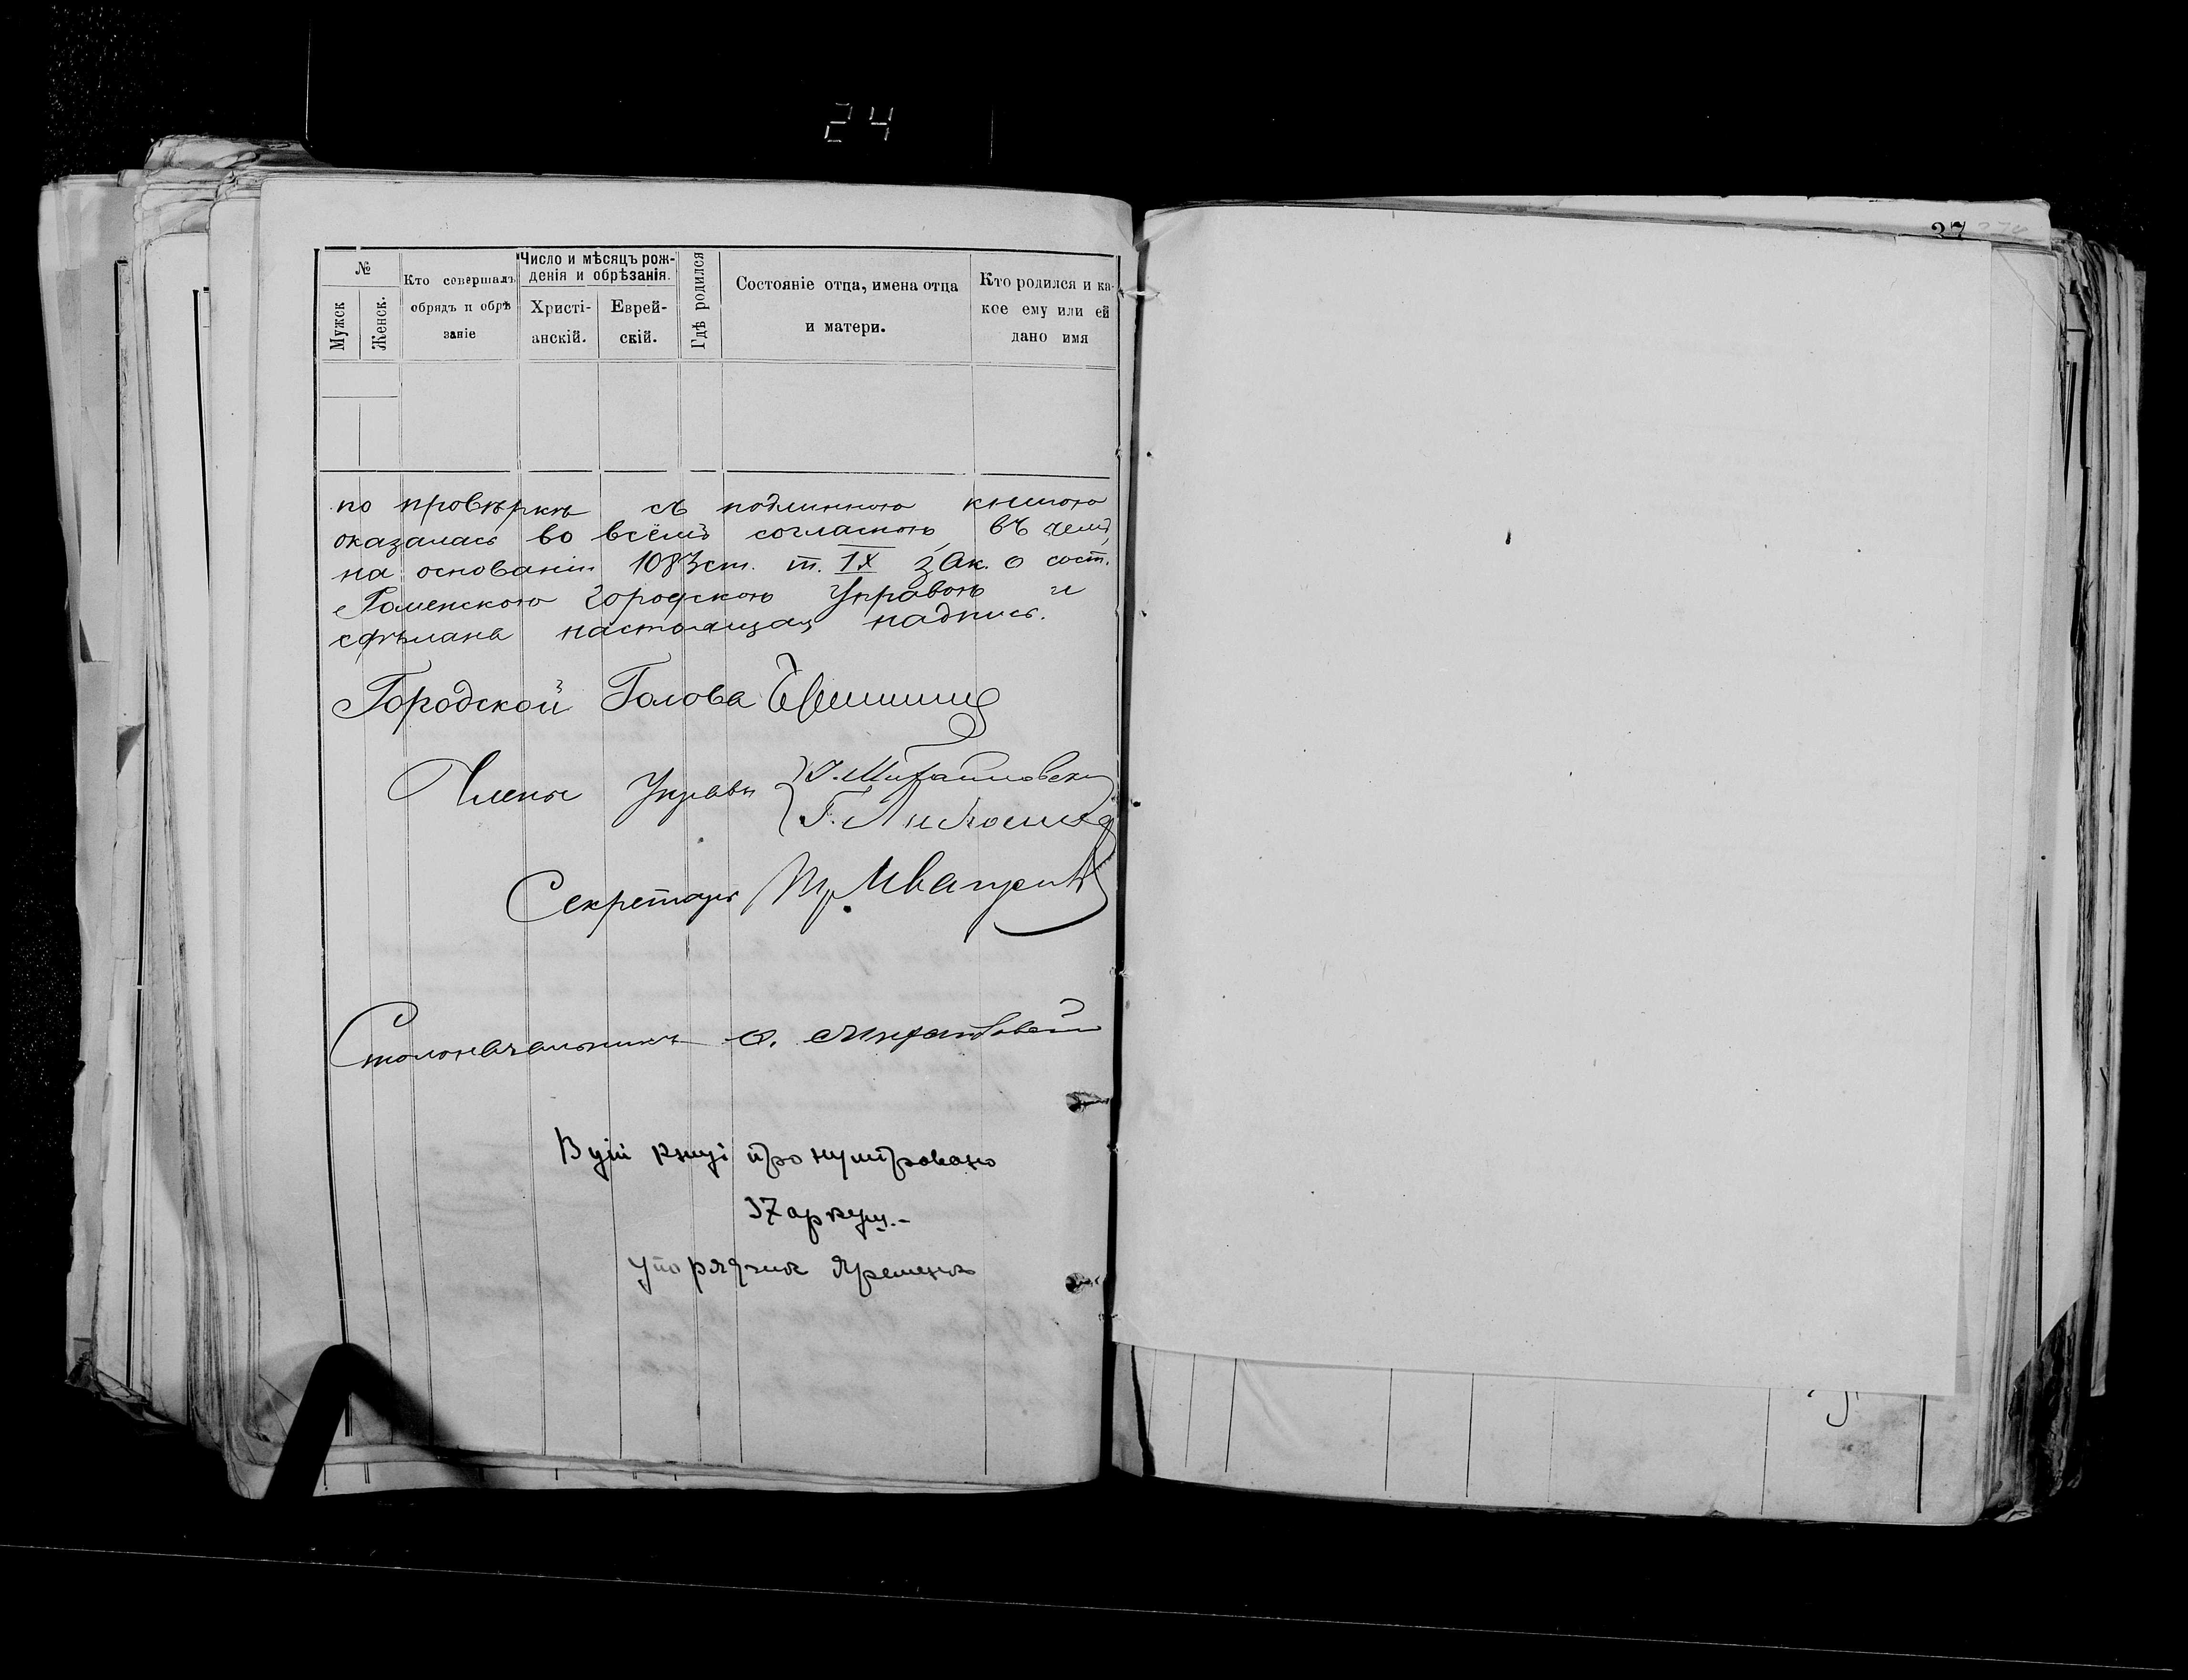 24
37
№
Мужск
Женск.
Кто совершалъ
обрядъ и обрѣ
заніе
Число и мѣсяцъ рож-
денія и обрѣзанія.
Христі-
анскій.
Еврей-
скій.
Гдѣ родился
Состояніе отца, имена отца
и матери.
Кто родился и ка-
кое ему или ей
дано имя
по провѣркѣ съ подлинною книгою
оказалась во всемъ согласною, въ чемъ,
на основаніи 1083 ст. т. IX зак. о сост.
Роменскою Городскою Управою и
сдѣлана настоящая надпись.
Городской Голова
Члены Управы
Секретарь
Столоначальникъ
В цій книзі пронумеровано
37 аркуш.-
упорядчик Яременко